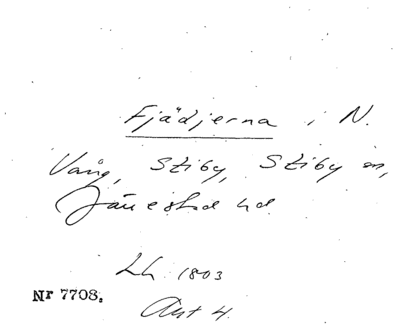 Fjädjerna i N.
Vång, Stiby, Stiby sn,
Järrestad hd
Lh 1803
Akt 4.
Nr 7708.